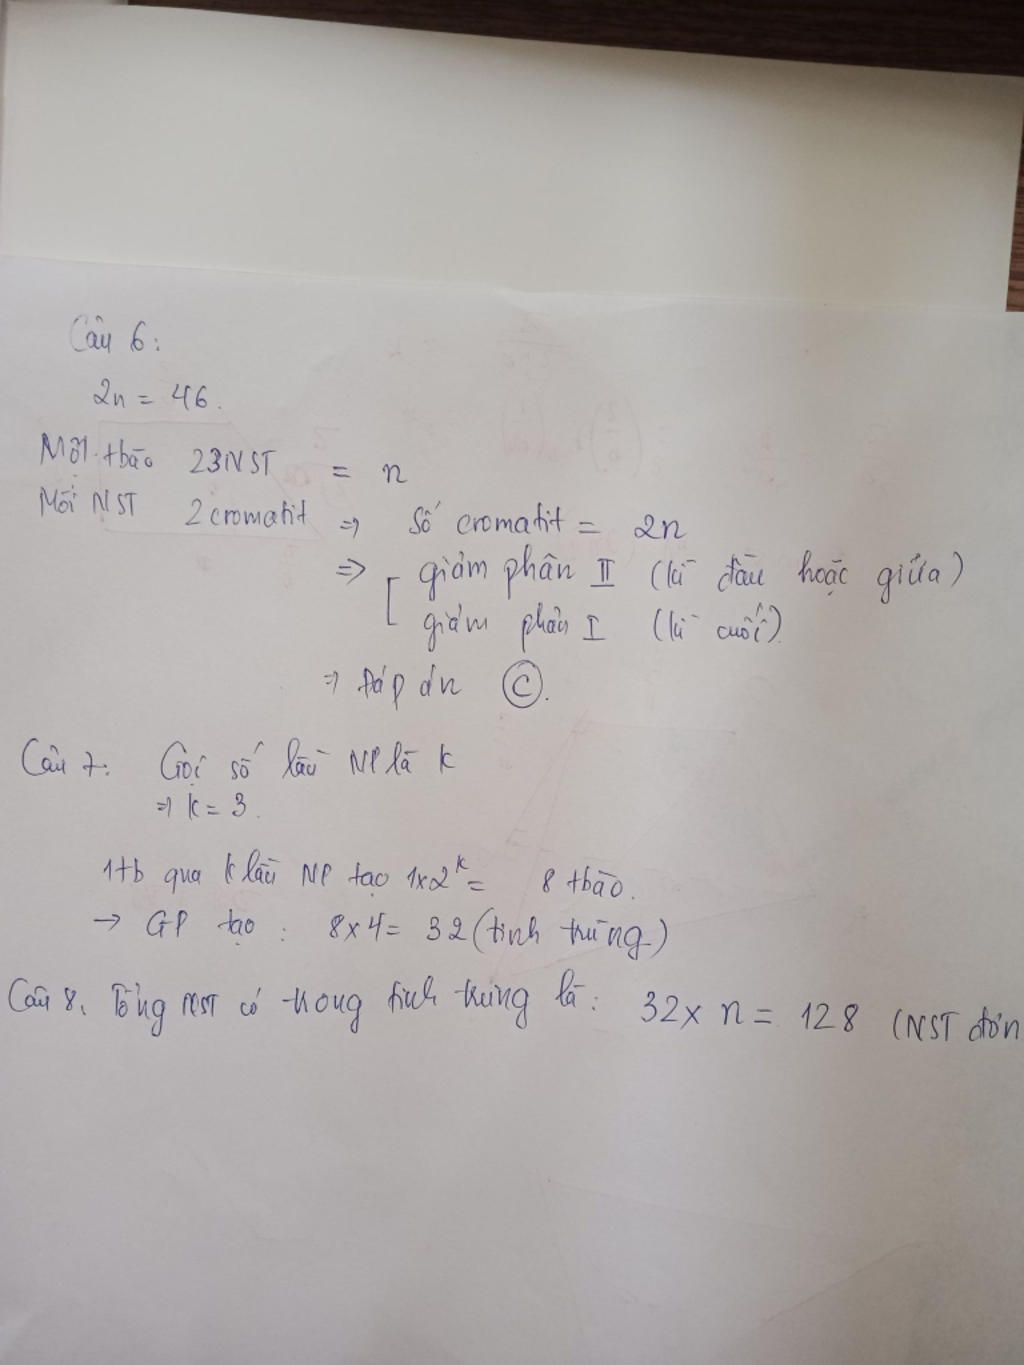 Câu 6:
2n = 46.
Một tbào 23NST = n
Mỗi NST 2 cromatit ⇒ Số cromatit = 2n
⇒ [ giảm phân II (kì đầu hoặc giữa)
giảm phân I (kì cuối)
⇒ Đáp án C.
Câu 7: Gọi số lần NP là k
⇒ k = 3.
1tb qua k lần NP tạo 1x2^k = 8 tbào.
→ GP tạo: 8x4 = 32 (tinh trùng)
Câu 8. Tổng NST có trong tinh trùng là: 32 x n = 128 (NST đơn